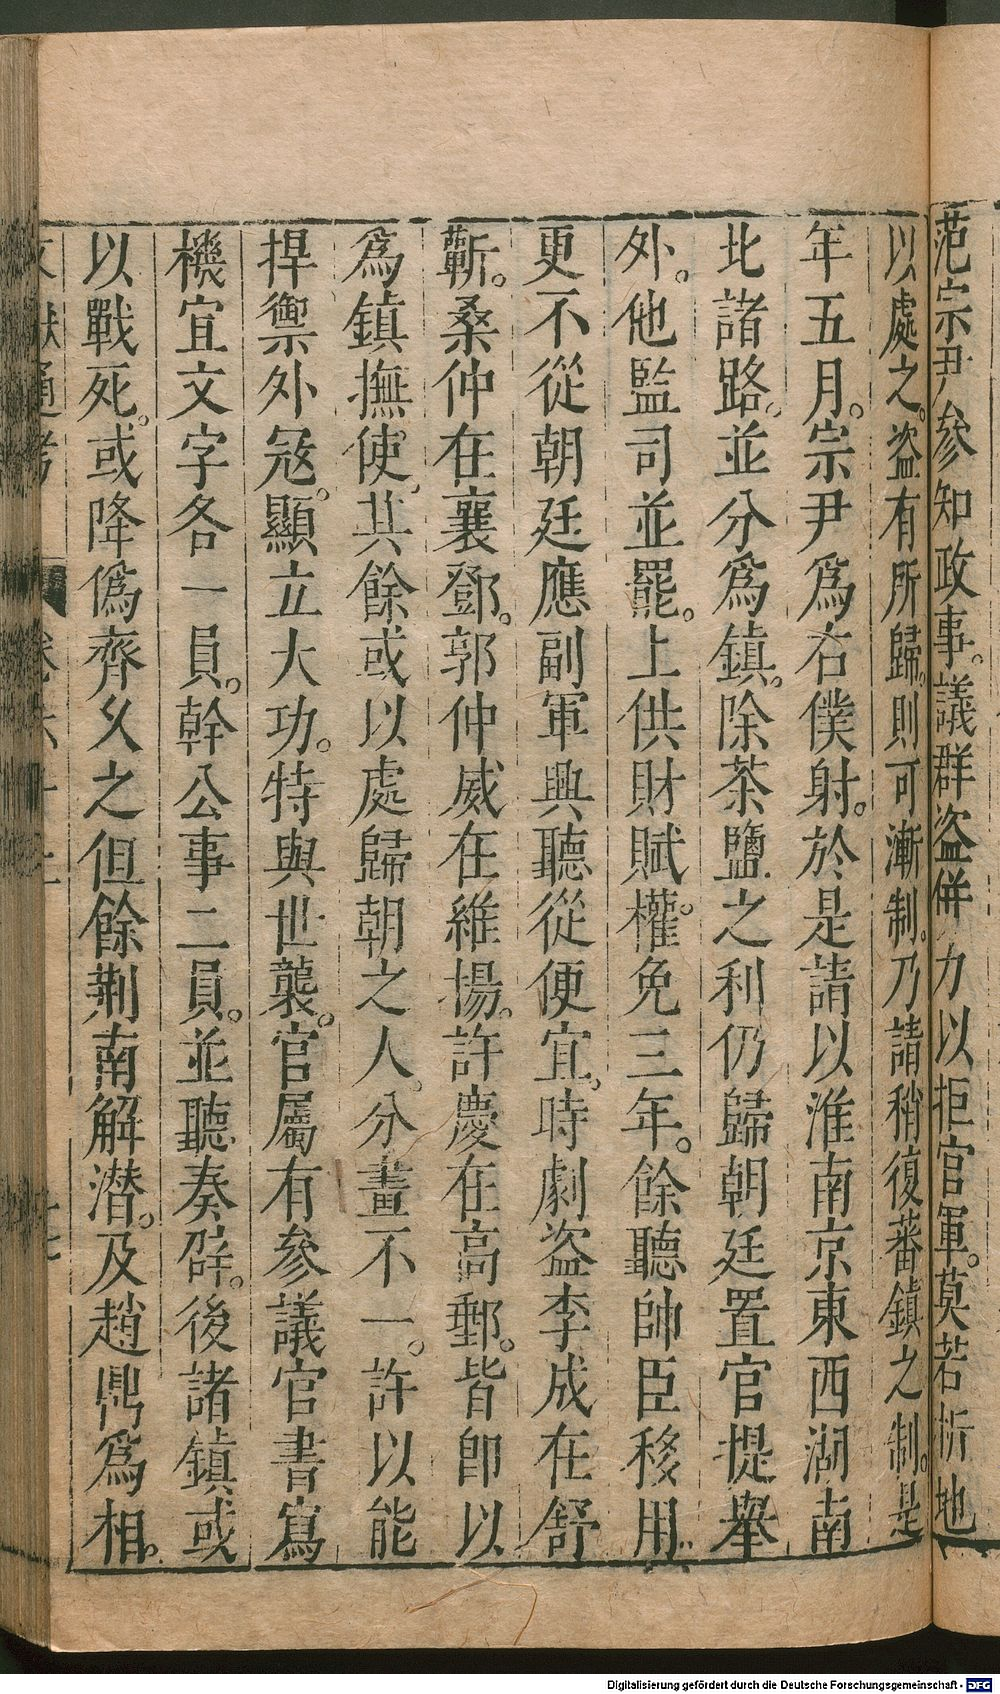 范宗尹參知政事。議群盜併力以拒官軍。莫若析地
以處之。盜有所歸。則可漸制。乃請稍復蕃鎮之制。是
年五月。宗尹爲右僕射。於是請以淮南京東西湖南
北諸路。並分爲鎮。除茶鹽之利仍歸朝廷置官提舉
外。他監司並罷。上供財賦。權免三年。餘聽帥臣移用。
更不從朝廷應副軍興聽從便宜。時劇盜李成在舒
蘄。桑仲在襄鄧。郭仲威在維揚。許慶在高郵。皆即以
爲鎮撫使。其餘或以處歸朝之人。分畫不一。許以能
捍禦外寇。顯立大功。特與世襲。官屬有參議官書寫
機宜文字各一員。幹公事二員。並聽奏辟。後諸鎮或
以戰死。或降僞齊久之但餘荆南解潜。及趙鼎爲相。
文獻通考 卷六十二 十七
Digitalisierung gefördert durch die Deutsche Forschungsgemeinschaft - DFG